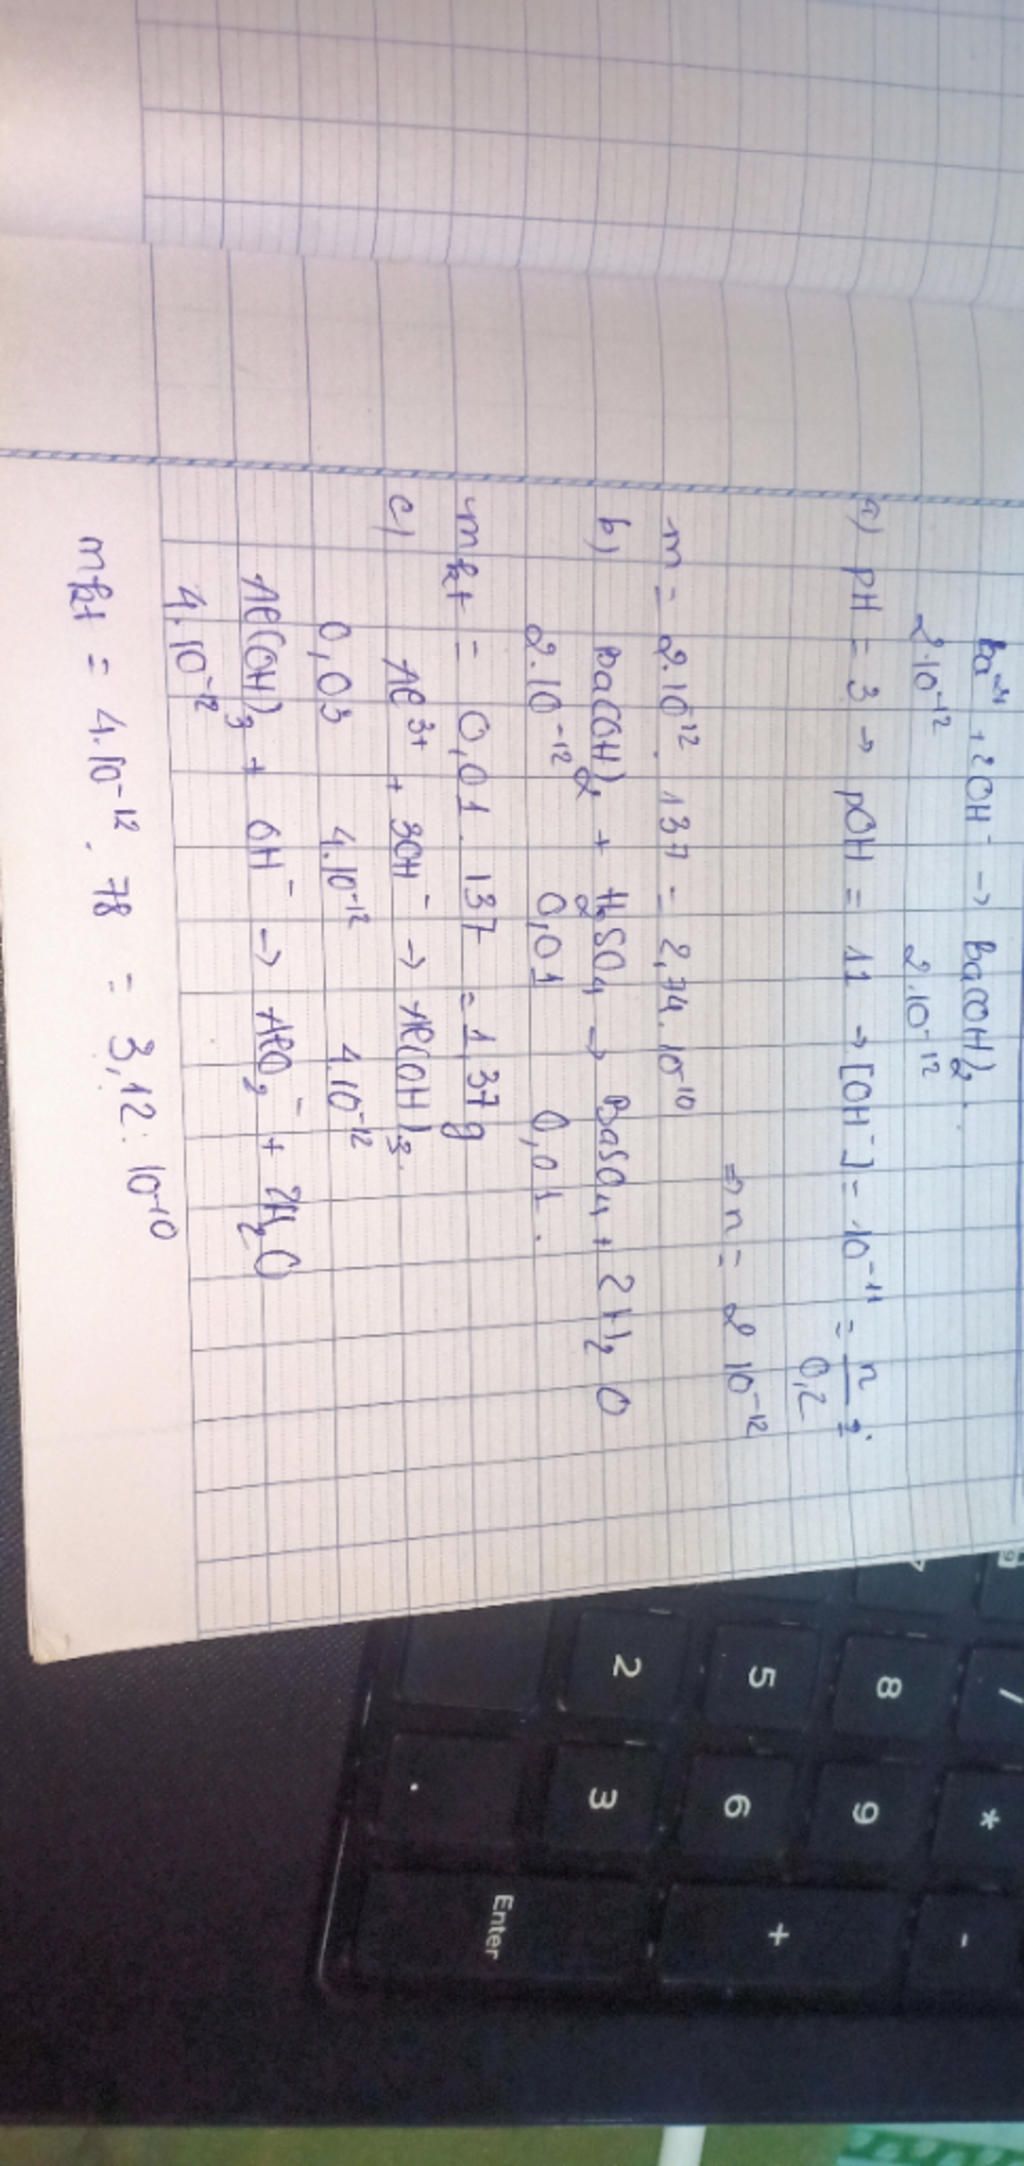 Ba²⁺ + 2OH⁻ → Ba(OH)₂.
2.10⁻¹² 2.10⁻¹²
a) pH = 3 → pOH = 11 → [OH⁻] = 10⁻¹¹ = n/0,2
⇒ n = 2 10⁻¹²
m = 2.10¹² . 137 = 2,74.10⁻¹⁰
b) Ba(OH)₂ + H₂SO₄ → BaSO₄ + 2H₂O
2.10⁻¹² 0,01 0,01.
mk↓ = 0,01 . 137 = 1,37g
c) Al³⁺ + 3OH⁻ → Al(OH)₃.
0,03 4.10⁻¹² 4.10⁻¹²
Al(OH)₃ + OH⁻ → AlO₂⁻ + 2H₂O
4.10⁻¹²
mk↓ = 4.10⁻¹² . 78 = 3,12.10⁻¹⁰
7 8 9
/ * -
5 6 +
2 3
. Enter